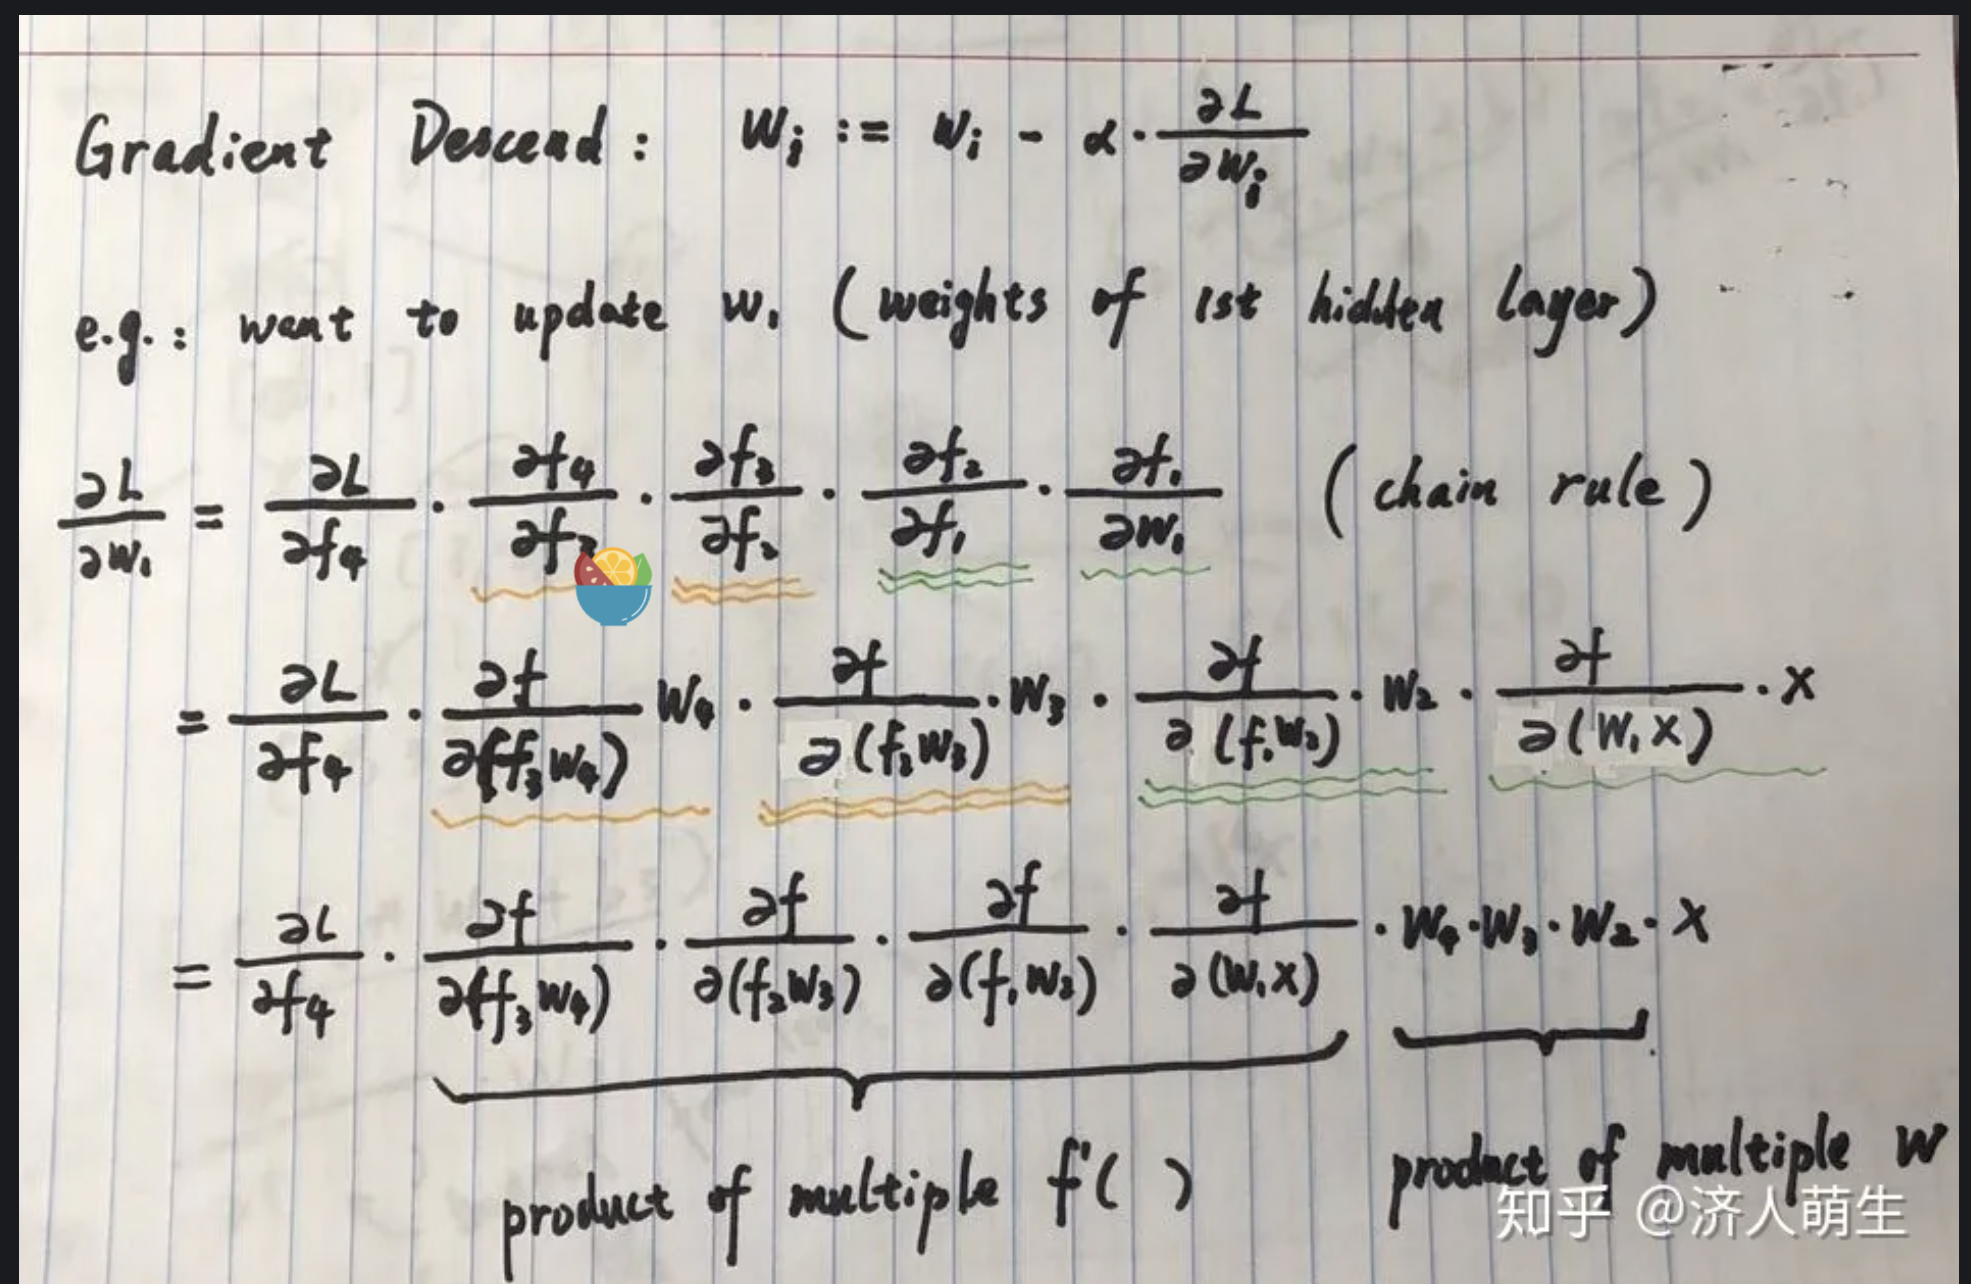 Gradient Descend: Wi := Wi - α · ∂L/∂Wi
e.g.: want to update W₁ (weights of 1st hidden layer)
∂L/∂W₁ = ∂L/∂f₄ · ∂f₄/∂f₃ · ∂f₃/∂f₂ · ∂f₂/∂f₁ · ∂f₁/∂W₁ (chain rule)
= ∂L/∂f₄ · ∂f/∂(f₃W₄) W₄ · ∂f/∂(f₂W₃) · W₃ · ∂f/∂(f₁W₂) · W₂ · ∂f/∂(W₁X) · X
= ∂L/∂f₄ · ∂f/∂(f₃W₄) · ∂f/∂(f₂W₃) · ∂f/∂(f₁W₂) · ∂f/∂(W₁X) · W₄·W₃·W₂·X
product of multiple f'( ) product of multiple W
知乎 @济人萌生